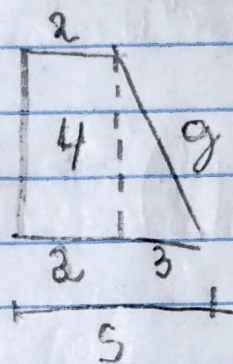 2
4 g
2 3
5